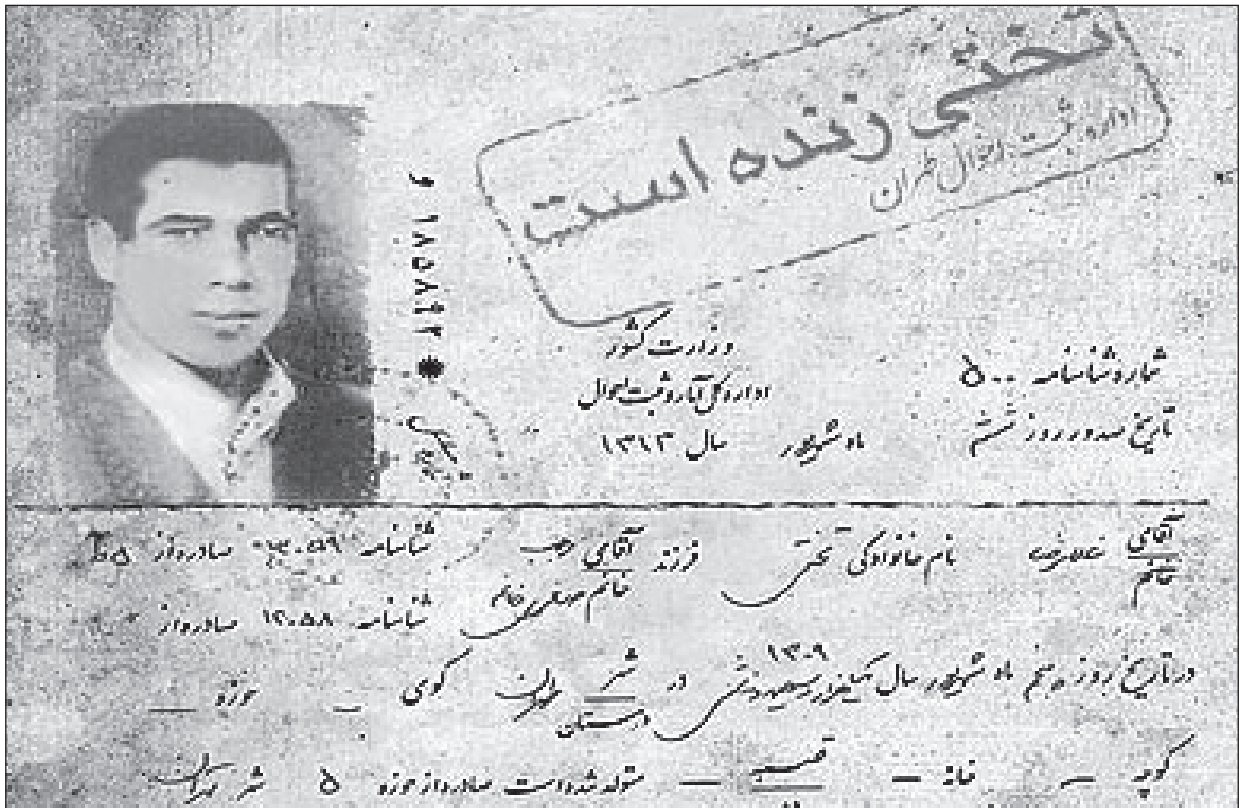 تختی زنده است
اداره ثبت احوال طهران
۱۸۵۸۹۲
وزارت کشور
اداره کل آمار و ثبت احوال
شماره شناسنامه ۵۰۰
تاریخ صدور روز ششم ماه شهریور سال ۱۳۱۳
آقای خانم غلامرضا نام خانوادگی تختی فرزند آقای رجب شناسنامه صادره از ۵ ط
خانم شناسنامه ۱۲۰۵۸ صادره از
در تاریخ روز پنجم ماه شهریور سال یکهزار و سیصد و نه ۱۳۰۹ در شهر طهران کوی — حوزه —
دهستان
کوچه — خانه — قصبه — متولد شده است صادره از حوزه ۵ شهر طهران